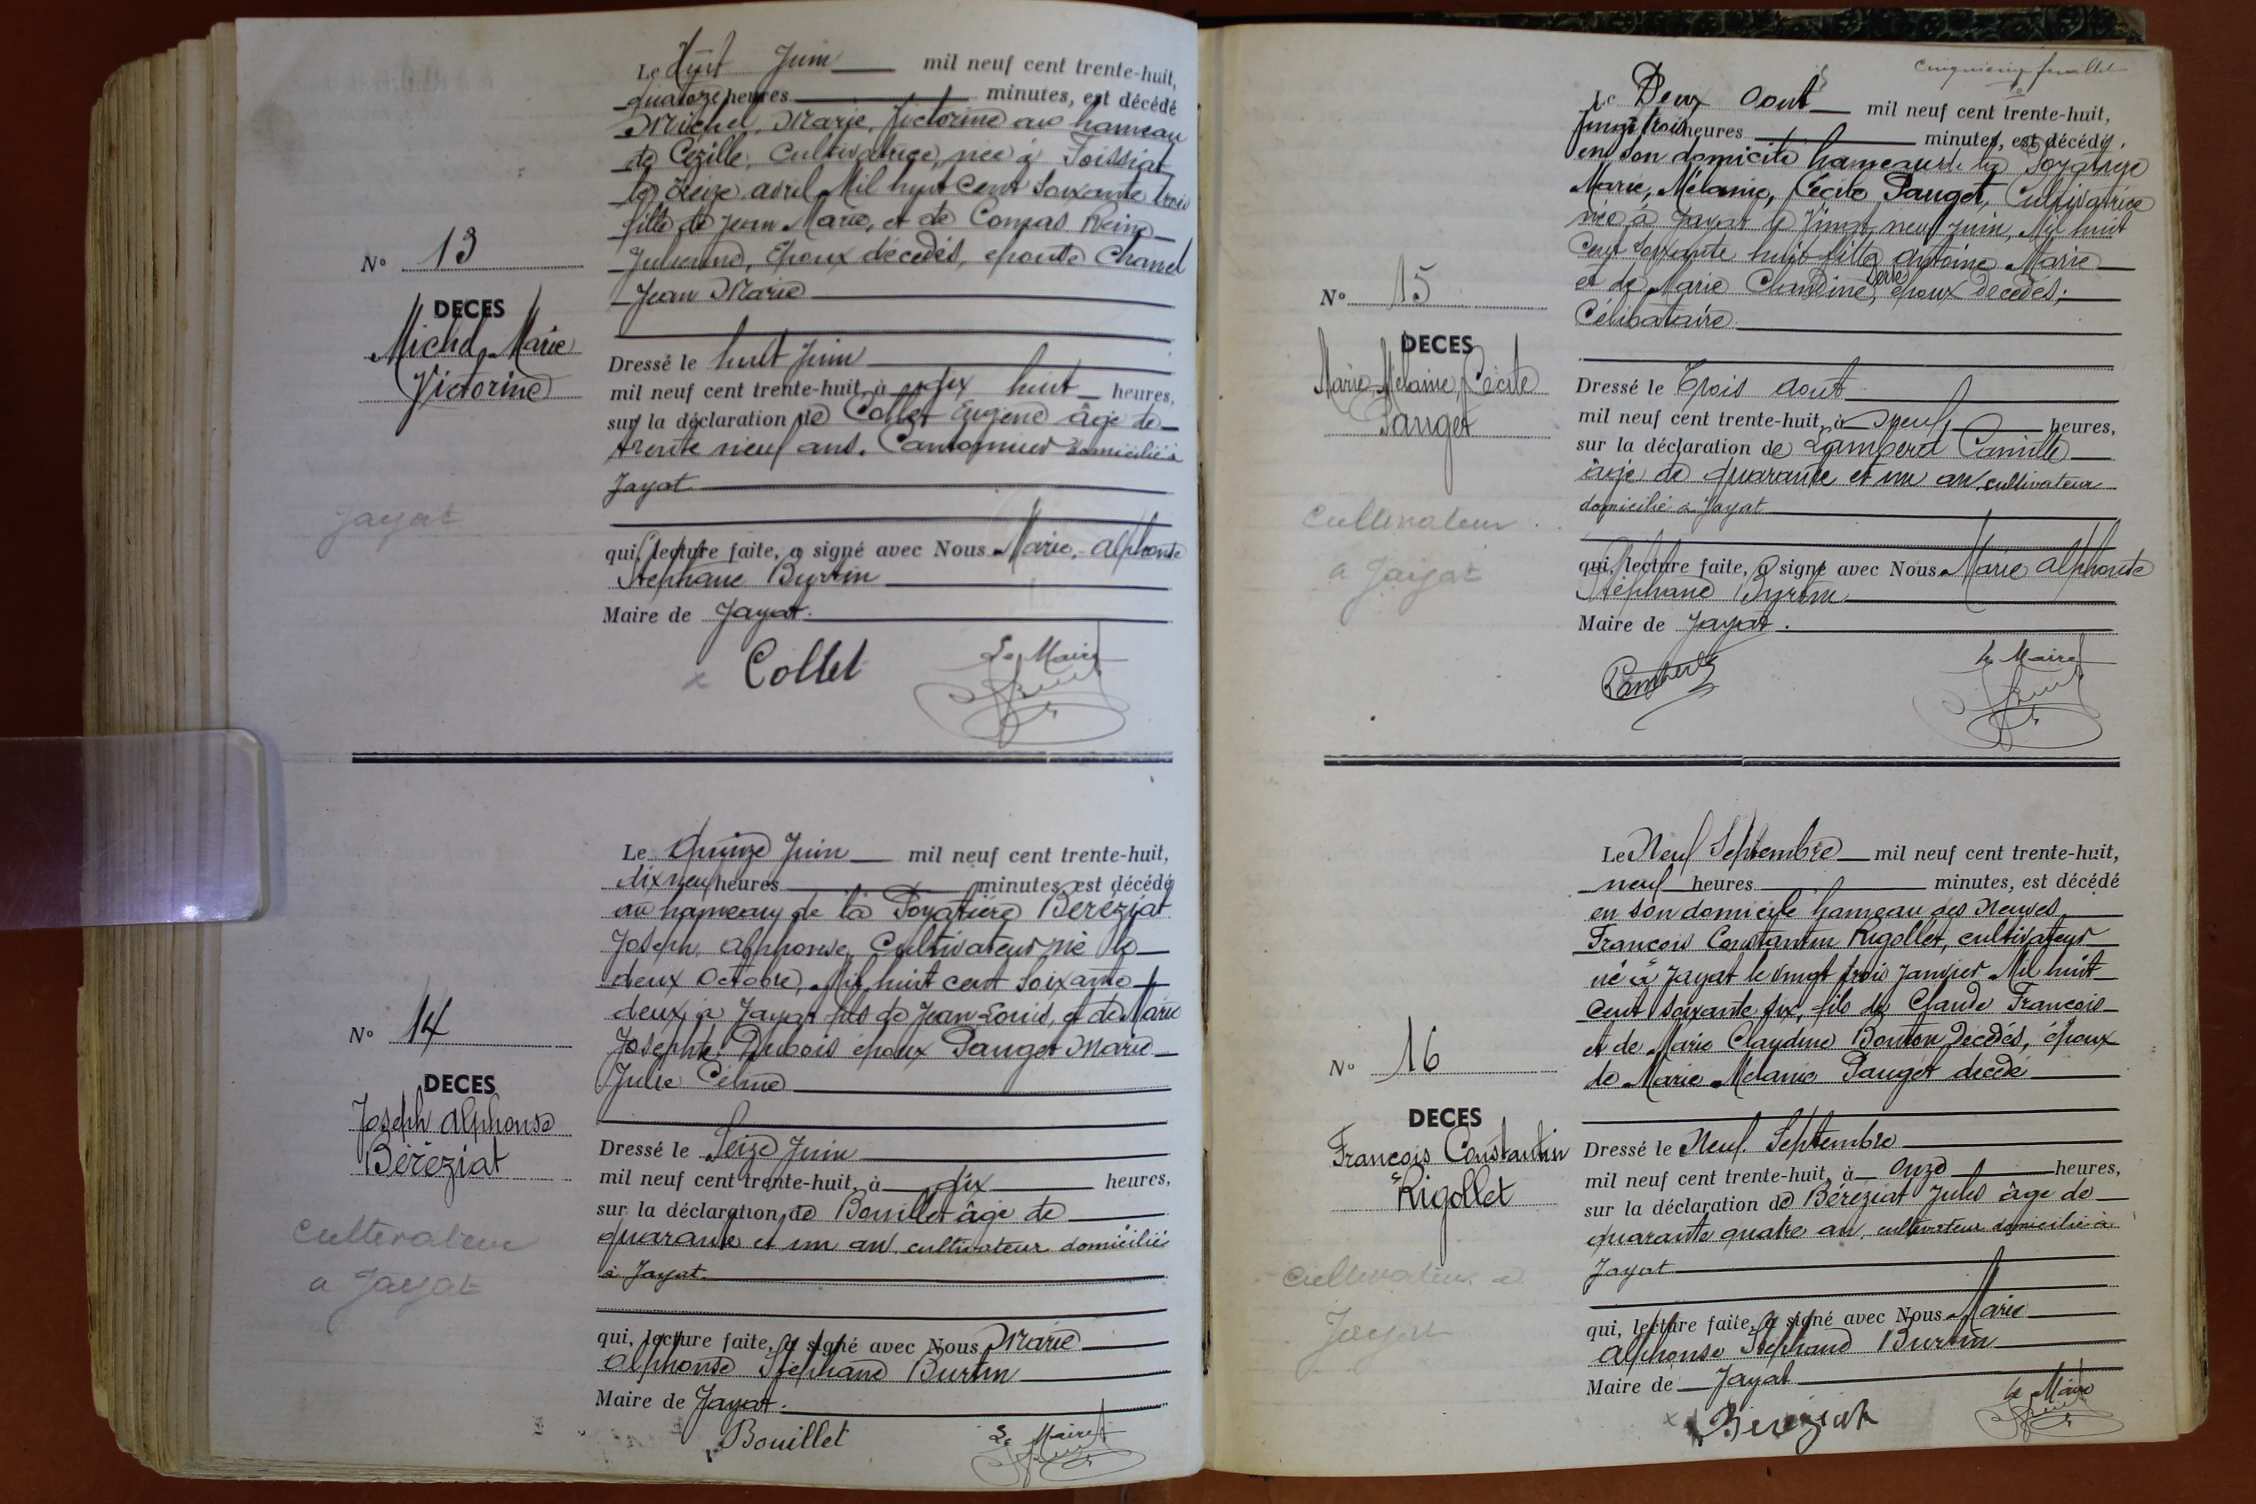 Le huit Juin mil neuf cent trente-huit,
quatorze heures minutes, est décédé
Michel, Marie, Victorine au hameau
de Cézille, Cultivatrice, née à Foissiat
le treize avril Mil huit cent soixante trois
fille de Jean Marie, et de Comas Reine
Julienne, Epoux décédés, épouse Chanel
Jean Marie
N° 13
DECES
Michel, Marie
Victorine
Dressé le huit Juin
mil neuf cent trente-huit, à dix huit heures,
sur la déclaration de Collet Eugène âgé de
trente neuf ans. Cantonnier domicilié à
Jayat
Jayat
qui, lecture faite, a signé avec Nous Marie, Alphonse
Stéphane Burtin
Maire de Jayat.
x Collet
Le Maire
Le quinze Juin mil neuf cent trente-huit,
dix neuf heures minutes, est décédé
au hameau de la Poyatière Béréziat
Joseph, Alphonse, Cultivateur né le
deux Octobre, Mil huit cent soixante
deux, à Jayat fils de Jean Louis, et de Marie
Josephte Dubois époux Pauget Marie
Julie Céline
N° 14
DECES
Joseph Alphonse
Béréziat
Dressé le Seize Juin
mil neuf cent trente-huit, à dix heures,
sur la déclaration de Bouillet âgé de
quarante et un an cultivateur domicilié
à Jayat.
cultivateur
a Jayat
qui, lecture faite, a signé avec Nous Marie
Alphonse Stéphane Burtin
Maire de Jayat.
Bouillet
Le Maire
Cinquième feuillet
Le Deux Aout mil neuf cent trente-huit,
vingt trois heures minutes, est décédé,
en son domicile hameau de la Poyatière
Marie, Mélanie, Cécile Pauget, Cultivatrice
née à Jayat le Vingt neuf juin, Mil huit
cent soixante huit fille Antoine Marie
et de Marie Claudine, époux décédés,
Célibataire
N° 15
DECES
Marie, Mélanie, Cécile
Pauget
Dressé le Trois Aout
mil neuf cent trente-huit, à neuf heures,
sur la déclaration de Lamberet Camille
âgé de quarante et un an, cultivateur
domicilié à Jayat
cultivateur
a Jayat
qui, lecture faite, a signé avec Nous Marie Alphonse
Stéphane Burtin
Maire de Jayat.
Le Maire
Le Neuf Septembre mil neuf cent trente-huit,
neuf heures minutes, est décédé
en son domicile hameau des Neuves
François Constantin Rigollet, cultivateur
né à Jayat le vingt trois Janvier Mil huit
cent soixante six, fils de Claude François
et de Marie Claudine Bonton décédés, époux
de Marie Mélanie Pauget décédé
N° 16
DECES
François Constantin
Rigollet
Dressé le Neuf Septembre
mil neuf cent trente-huit, à onze heures,
sur la déclaration de Béréziat Jules âgé de
quarante quatre an, cultivateur domicilié à
Jayat
Cultivateur a
Jayat
qui, lecture faite, a signé avec Nous Marie
Alphonse Stéphane Burtin
Maire de Jayat
x Béréziat
Le Maire